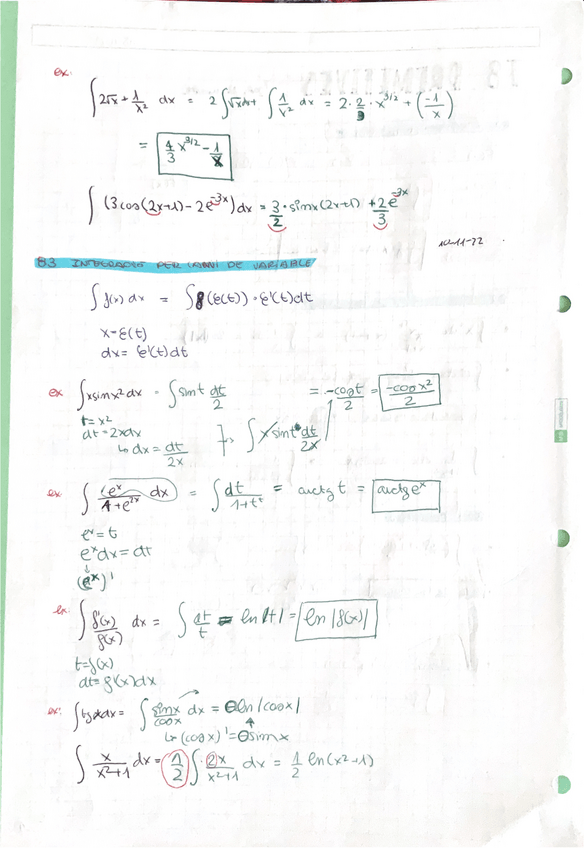 ex:
∫ 2√x + 1/x² dx = 2 ∫ √x dx + ∫ 1/x² dx = 2 · 2/3 · x^3/2 + (-1/x)
= 4/3 x^3/2 - 1/x
∫ (3 cos(2x+1) - 2e^-3x) dx = 3/2 · sinx(2x+1) + 2/3 e^-3x
10-11-22
8.3 INTEGRACIÓ PER CANVI DE VARIABLE
∫ f(x) dx = ∫ f(φ(t)) · φ'(t) dt
x = φ(t)
dx = φ'(t) dt
ex ∫ x sin x² dx = ∫ sin t dt/2 = -cos t/2 = -cos x²/2
t = x²
dt = 2x dx
↳ dx = dt/2x → ∫ x sin t · dt/2x
ex ∫ e^x/1+e^2x dx = ∫ dt/1+t² = arctg t = arctg e^x
e^x = t
e^x dx = dt
↓
(e^x)'
ex: ∫ f'(x)/f(x) dx = ∫ dt/t = ln |t| = ln |f(x)|
t = f(x)
dt = f'(x) dx
ex: ∫ tg x dx = ∫ sinx/cosx dx = -ln |cosx|
(cosx)' = -sinx
∫ x/x²+1 dx = 1/2 ∫ 2x/x²+1 dx = 1/2 ln (x²+1)